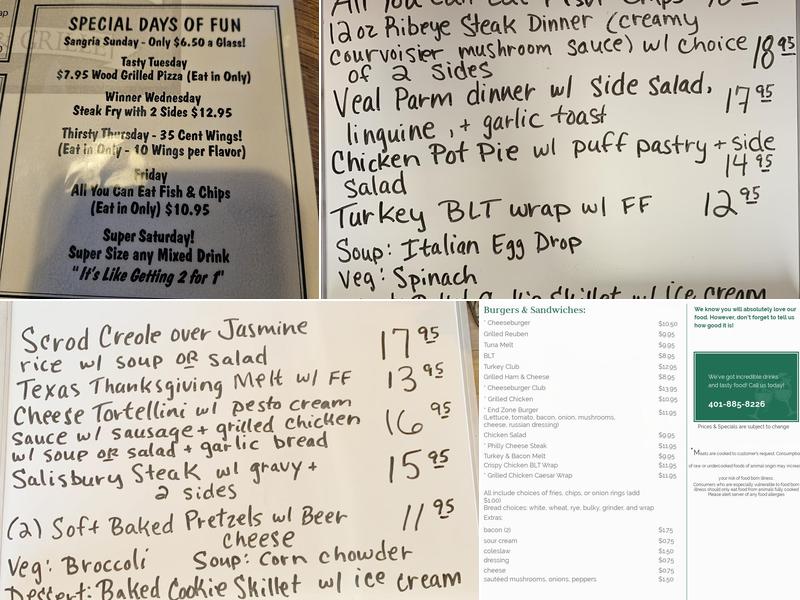 SPECIAL DAYS OF FUN
Sangria Sunday - Only $6.50 a Glass!
Tasty Tuesday
$7.95 Wood Grilled Pizza (Eat in Only)
Winner Wednesday
Steak Fry with 2 Sides $12.95
Thirsty Thursday - 35 Cent Wings!
(Eat in Only - 10 Wings per Flavor)
Friday
All You Can Eat Fish & Chips
(Eat in Only) $10.95
Super Saturday!
Super Size any Mixed Drink
"It's Like Getting 2 for 1"
All You Can Eat Fish Chips
12 oz Ribeye Steak Dinner (creamy
courvoisier mushroom sauce) w/ choice 18 95
of 2 sides
Veal Parm dinner w/ side salad, 17 95
linguine, + garlic toast
Chicken Pot Pie w/ puff pastry + side
salad 14 95
Turkey BLT wrap w/ FF 12 95
Soup: Italian Egg Drop
Veg: Spinach
Skillet w/ ice cream
Scrod Creole over Jasmine 17 95
rice w/ soup OR salad
Texas Thanksgiving Melt w/ FF 13 95
Cheese Tortellini w/ pesto cream
sauce w/ sausage + grilled chicken 16 95
w/ soup OR salad + garlic bread
Salisbury Steak w/ gravy + 15 95
2 sides
(2) Soft Baked Pretzels w/ Beer 11 95
cheese
Veg: Broccoli Soup: Corn chowder
Dessert: Baked Cookie Skillet w/ ice cream
Burgers & Sandwiches:
* Cheeseburger $10.50
Grilled Reuben $9.95
Tuna Melt $9.95
BLT $8.95
Turkey Club $12.95
Grilled Ham & Cheese $8.95
* Cheeseburger Club $13.95
* Grilled Chicken $10.95
* End Zone Burger $11.95
(Lettuce, tomato, bacon, onion, mushrooms,
cheese, russian dressing)
Chicken Salad $9.95
* Philly Cheese Steak $11.95
Turkey & Bacon Melt $9.95
Crispy Chicken BLT Wrap $11.95
* Grilled Chicken Caesar Wrap $11.95
All include choices of fries, chips, or onion rings (add
$1.00)
Bread choices: white, wheat, rye, bulky, grinder, and wrap
Extras:
bacon (2) $1.75
sour cream $0.75
coleslaw $1.50
dressing $0.75
cheese $0.75
sautéed mushrooms, onions, peppers $1.50
We know you will absolutely love our
food. However, don't forget to tell us
how good it is!
We've got incredible drinks
and tasty food! Call us today!
401-885-8226
Prices & Specials are subject to change
*Meats are cooked to customer's request. Consumption
of raw or undercooked foods of animal origin may increase
your risk of food born illness.
Consumers who are especially vulnerable to food born
illness should only eat food from animals fully cooked
Please alert server of any food allergies